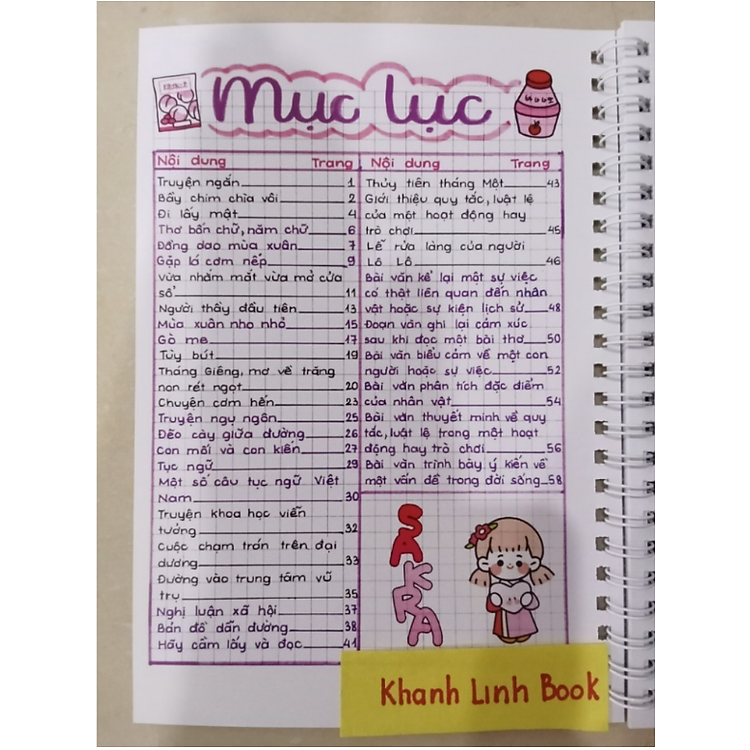 Mục lục
Nội dung Trang
Truyện ngắn 1
Bầy chim chìa vôi 2
Đi lấy mật 4
Thơ bốn chữ, năm chữ 6
Đồng dao mùa xuân 7
Gặp lá cơm nếp 9
vừa nhắm mắt vừa mở cửa
sổ 11
Người thầy đầu tiên 13
Mùa xuân nho nhỏ 15
Gò me 17
Tùy bút 19
Tháng Giêng, mơ về trăng
non rét ngọt 20
Chuyện cơm hến 23
Truyện ngụ ngôn 25
Đẽo cày giữa đường 26
Con mối và con kiến 27
Tục ngữ 29
Một số câu tục ngữ Việt
Nam 30
Truyện khoa học viễn
tưởng 32
Cuộc chạm trán trên đại
dương 33
Đường vào trung tâm vũ
trụ 35
Nghị luận xã hội 37
Bản đồ dẫn đường 38
Hãy cầm lấy và đọc 41
Nội dung Trang
Thủy tiên tháng Một 43
Giới thiệu quy tắc, luật lệ
của một hoạt động hay
trò chơi 45
Lễ rửa làng của người
Lô Lô 46
Bài văn kể lại một sự việc
có thật liên quan đến nhân
vật hoặc sự kiện lịch sử 48
Đoạn văn ghi lại cảm xúc
sau khi đọc một bài thơ 50
Bài văn biểu cảm về một con
người hoặc sự việc 52
Bài văn phân tích đặc điểm
của nhân vật 54
Bài văn thuyết minh về quy
tắc, luật lệ trong một hoạt
động hay trò chơi 56
Bài văn trình bày ý kiến về
một vấn đề trong đời sống 58
SAKRA
Khanh Linh Book